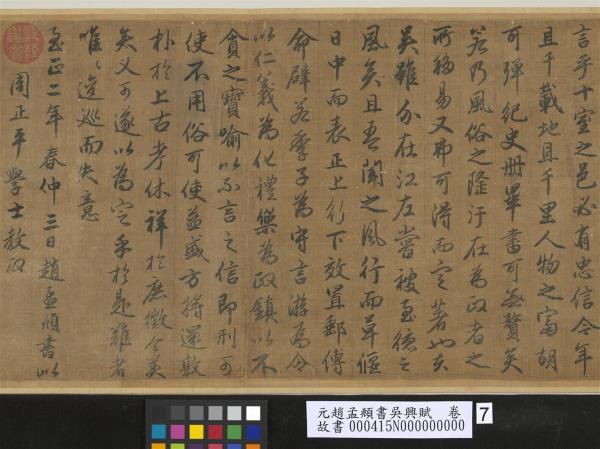 言乎十室之邑必有忠信今年
且千載地且千里人物之富胡
可殫紀史冊畢書可無贅矣
若乃風俗之隆汙在為政者之
所移易又弗可得而定著也夫
吳雖分在江左嘗被至德之
風矣且吾聞之風行而草偃
日中而表正上行下效置郵傳
命辟若季子為守言游為令
以仁義為化禮樂為政鎮以不
貪之寶喻以不言之信即刑可
使不用俗可使益盛方將還敦
朴於上古考休祥於庶徵令美
矣又可遂以為定乎於是難者
唯唯逡巡而失意
至正二年春仲三日趙孟頫書以
周正平學士教政
元趙孟頫書吳興賦 卷
故書000415N000000000
7